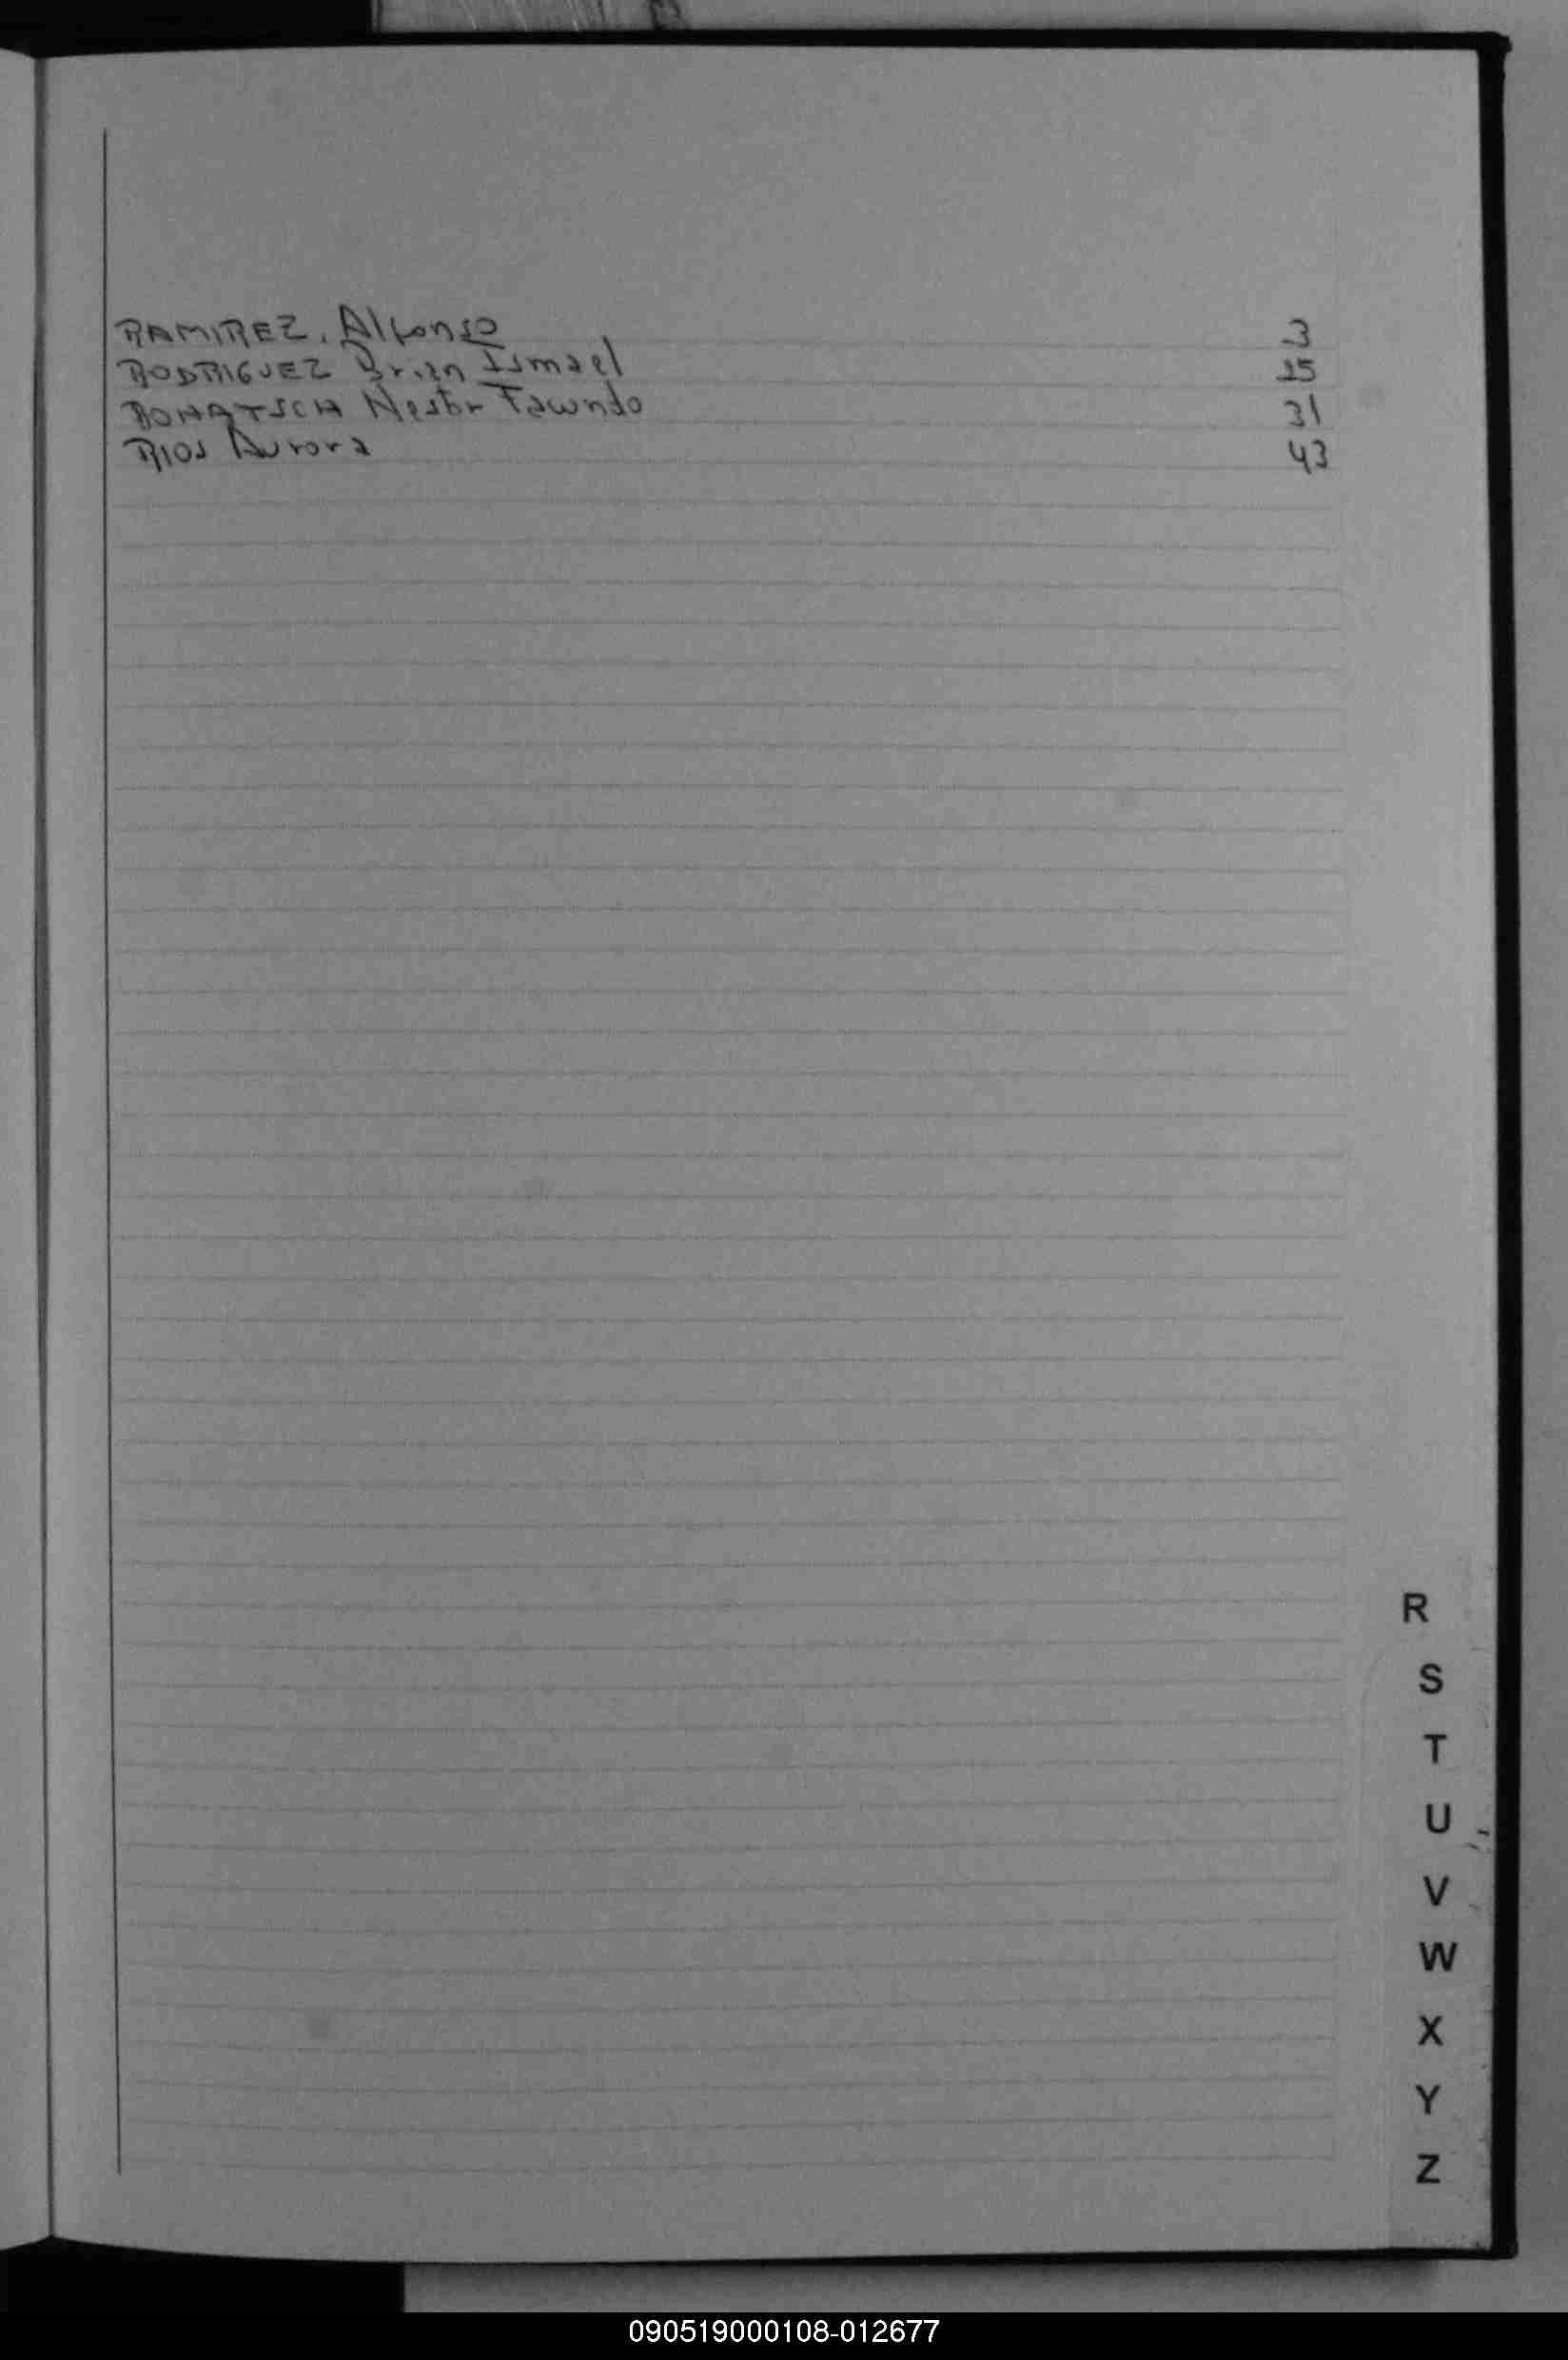 RAMIREZ, Alfonso 3
RODRIGUEZ Brian Ismael 25
ROHATSCH Nestor Facundo 31
RIOS Aurora 43
R
S
T
U
V
W
X
Y
Z
090519000108-012677